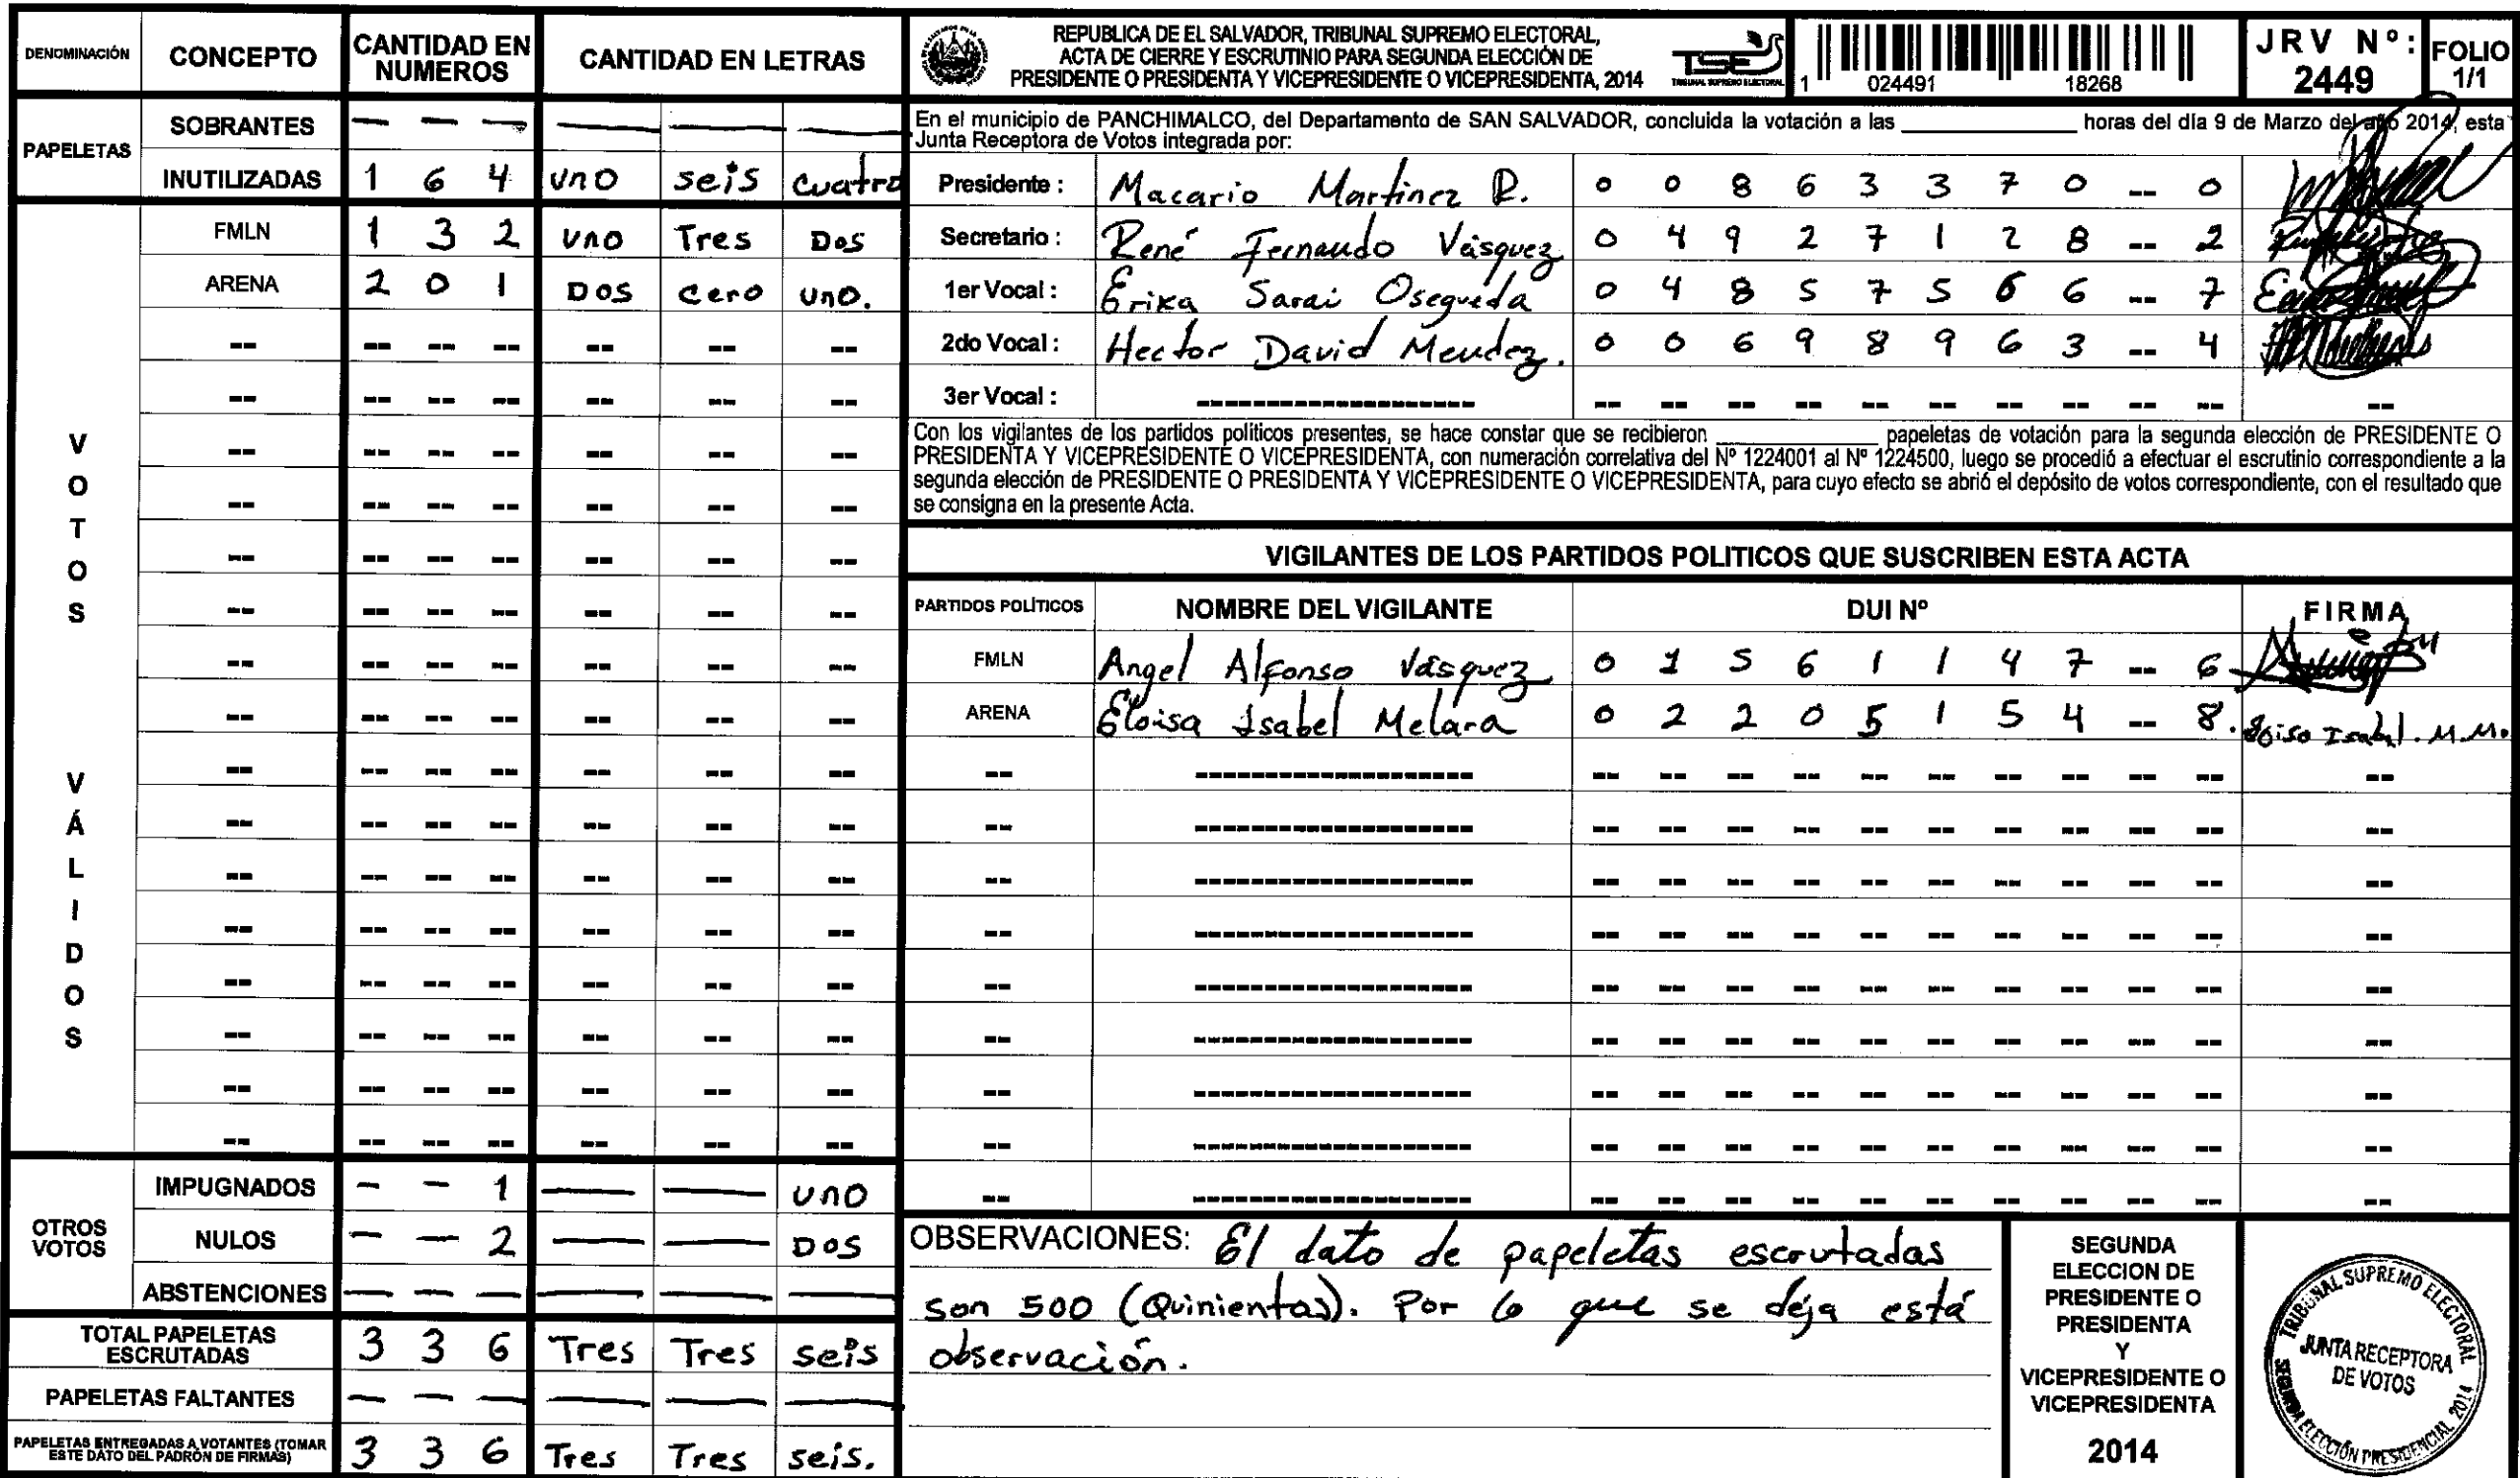 DENOMINACIÓN CONCEPTO CANTIDAD EN NUMEROS CANTIDAD EN LETRAS
PAPELETAS
SOBRANTES — — — — — —
INUTILIZADAS 1 6 4 uno seis cuatro
VOTOS VÁLIDOS
FMLN 1 3 2 uno Tres Dos
ARENA 2 0 1 Dos cero uno.
OTROS VOTOS
IMPUGNADOS — — 1 — — uno
NULOS — — 2 — — Dos
ABSTENCIONES — — — — — —
TOTAL PAPELETAS ESCRUTADAS 3 3 6 Tres Tres seis
PAPELETAS FALTANTES — — — — — —
PAPELETAS ENTREGADAS A VOTANTES (TOMAR ESTE DATO DEL PADRÓN DE FIRMAS) 3 3 6 Tres Tres seis.
REPUBLICA DE EL SALVADOR, TRIBUNAL SUPREMO ELECTORAL,
ACTA DE CIERRE Y ESCRUTINIO PARA SEGUNDA ELECCIÓN DE
PRESIDENTE O PRESIDENTA Y VICEPRESIDENTE O VICEPRESIDENTA, 2014
TSE
TRIBUNAL SUPREMO ELECTORAL
1 024491 18268
JRV Nº: 2449
FOLIO 1/1
En el municipio de PANCHIMALCO, del Departamento de SAN SALVADOR, concluida la votación a las ________ horas del día 9 de Marzo del año 2014, esta
Junta Receptora de Votos integrada por:
Presidente : Macario Martinez R. 0 0 8 6 3 3 7 0 -- 0
Secretario : René Fernando Vásquez 0 4 9 2 7 1 2 8 -- 2
1er Vocal : Erika Sarai Osegueda 0 4 8 5 7 5 6 6 -- 7
2do Vocal : Hector David Mendez. 0 0 6 9 8 9 6 3 -- 4
3er Vocal :
Con los vigilantes de los partidos políticos presentes, se hace constar que se recibieron ________ papeletas de votación para la segunda elección de PRESIDENTE O
PRESIDENTA Y VICEPRESIDENTE O VICEPRESIDENTA, con numeración correlativa del Nº 1224001 al Nº 1224500, luego se procedió a efectuar el escrutinio correspondiente a la
segunda elección de PRESIDENTE O PRESIDENTA Y VICEPRESIDENTE O VICEPRESIDENTA, para cuyo efecto se abrió el depósito de votos correspondiente, con el resultado que
se consigna en la presente Acta.
VIGILANTES DE LOS PARTIDOS POLITICOS QUE SUSCRIBEN ESTA ACTA
PARTIDOS POLÍTICOS NOMBRE DEL VIGILANTE DUI Nº FIRMA
FMLN Angel Alfonso Vásquez 0 1 5 6 1 1 4 7 -- 6
ARENA Eloisa Isabel Melara 0 2 2 0 5 1 5 4 -- 8. Eloisa Isabel. M.M.
OBSERVACIONES: El dato de papeletas escrutadas
son 500 (Quinientas). Por lo que se deja está
observación.
SEGUNDA
ELECCION DE
PRESIDENTE O
PRESIDENTA
Y
VICEPRESIDENTE O
VICEPRESIDENTA
2014
TRIBUNAL SUPREMO ELECTORAL
JUNTA RECEPTORA
DE VOTOS
SEGUNDA ELECCIÓN PRESIDENCIAL 2014